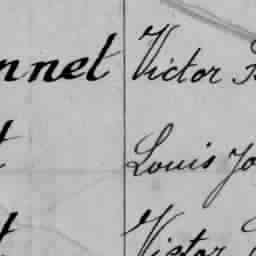 nnet Victor
t Louis Jo
t Victor